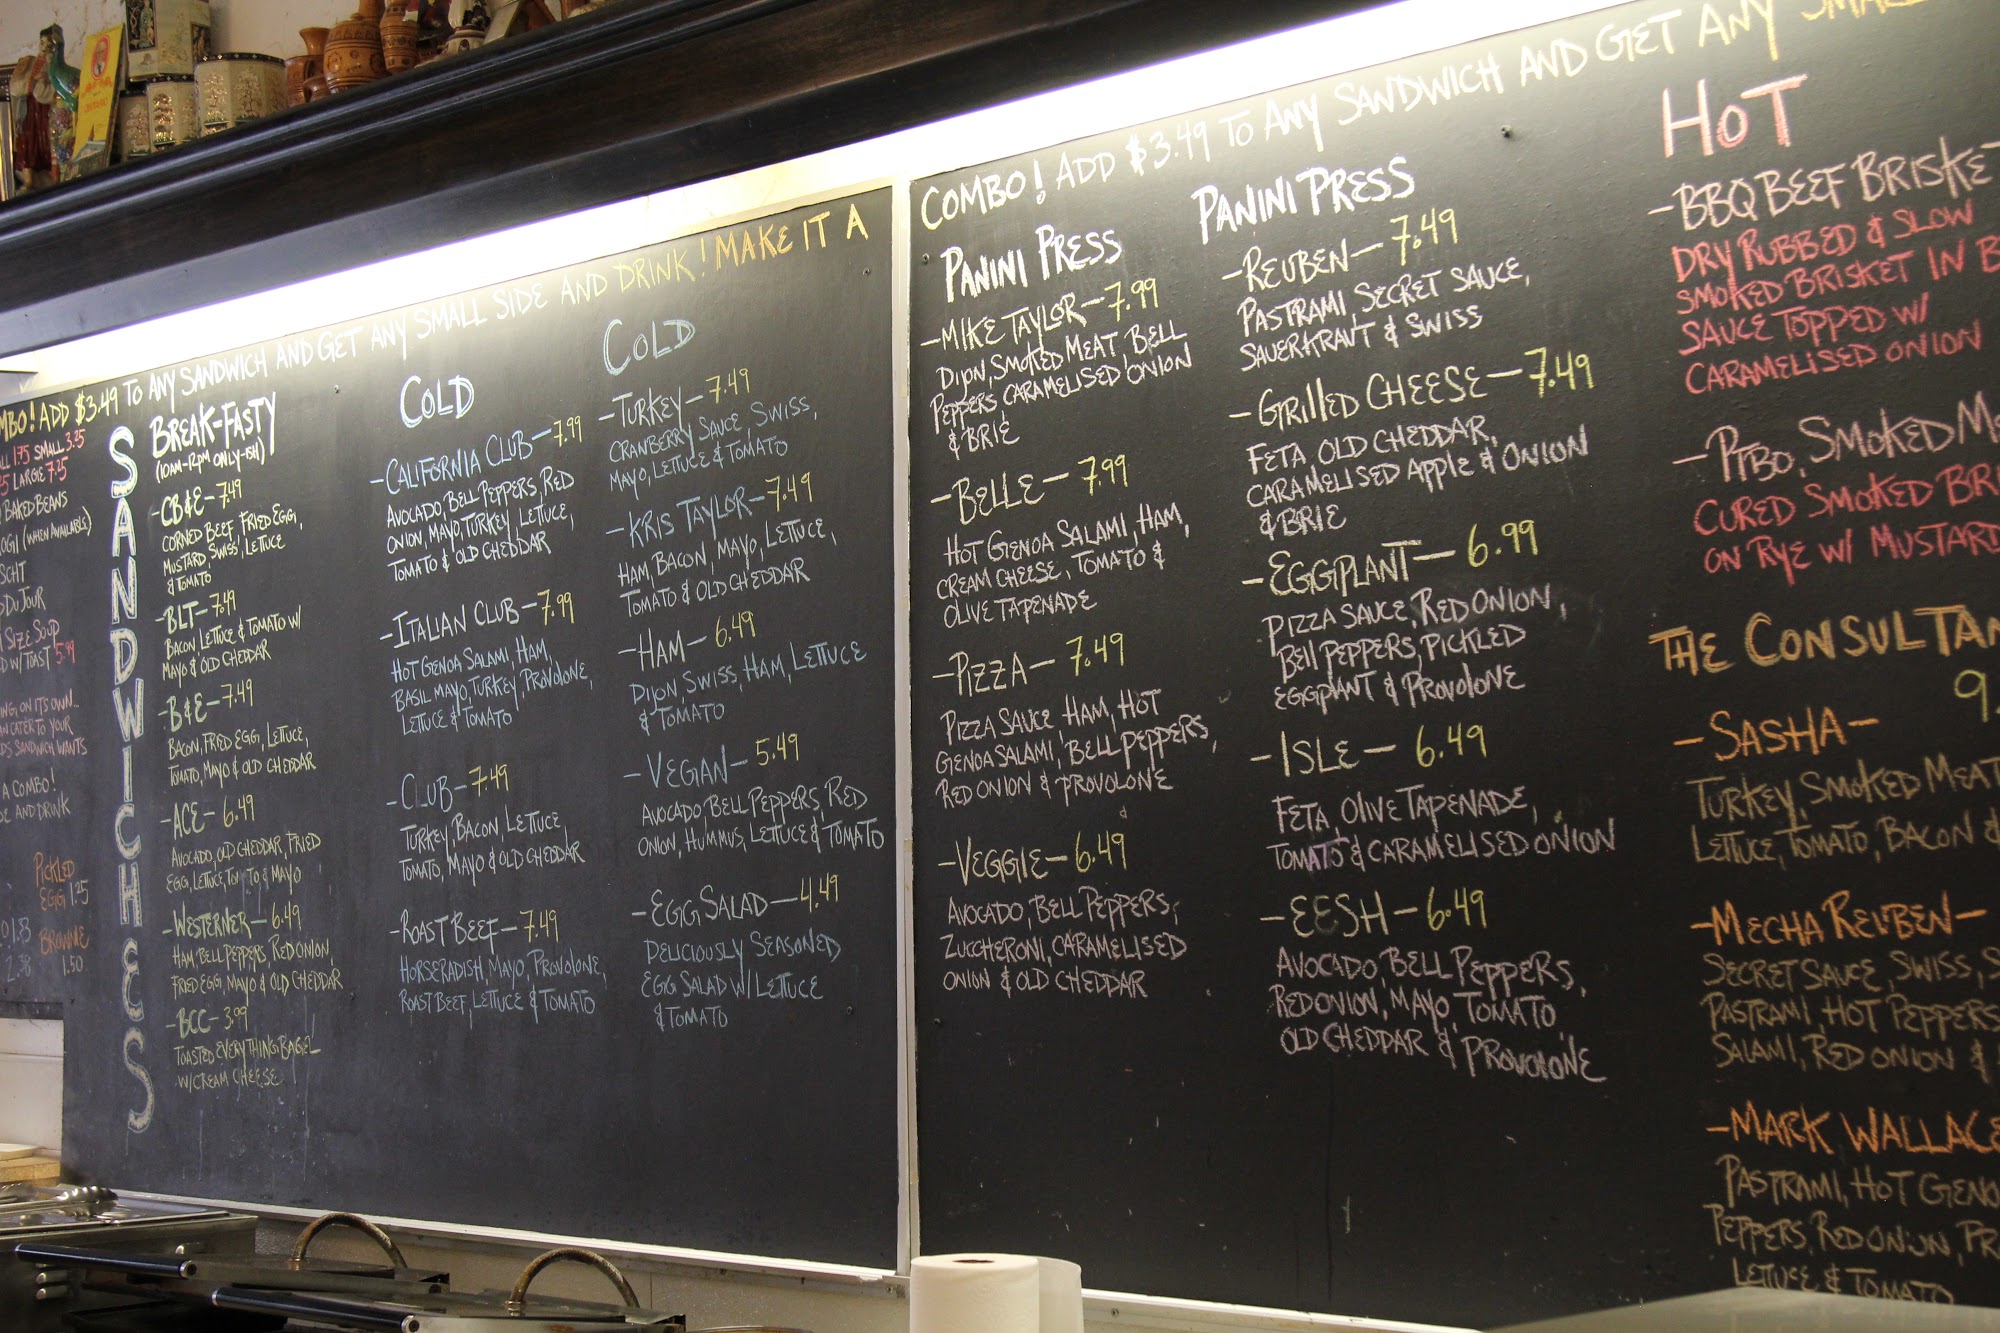 COMBO! ADD $3.49 TO ANY SANDWICH AND GET ANY SMALL SIDE AND DRINK! MAKE IT A
1.75 SMALL 3.25
LARGE 7.25
BAKED BEANS
(WHEN AVAILABLE)
DU JOUR
SIZE SOUP
W/ TOAST 5.99
ON ITS OWN...
CATER TO YOUR
SANDWICH WANTS
A COMBO!
AND DRINK
PICKLED
EGG 1.25
BROWNIE
1.50
SANDWICHES
BREAK-FASTY
(10AM-12PM ONLY-ISH)
-CB&E-7.49
CORNED BEEF, FRIED EGG,
MUSTARD, SWISS, LETTUCE
& TOMATO
-BLT-7.49
BACON LETTUCE & TOMATO W/
MAYO & OLD CHEDDAR
-B&E-7.49
BACON, FRIED EGG, LETTUCE,
TOMATO, MAYO & OLD CHEDDAR
-ACE-6.49
AVOCADO, OLD CHEDDAR, FRIED
EGG, LETTUCE, TOMATO & MAYO
-WESTERNER-6.49
HAM, BELL PEPPERS, RED ONION,
FRIED EGG, MAYO & OLD CHEDDAR
-BCC-3.99
TOASTED EVERYTHING BAGEL
W/CREAM CHEESE
COLD
-CALIFORNIA CLUB-7.99
AVOCADO, BELL PEPPERS, RED
ONION, MAYO, TURKEY, LETTUCE,
TOMATO & OLD CHEDDAR
-ITALIAN CLUB-7.99
HOT GENOA SALAMI, HAM,
BASIL MAYO, TURKEY, PROVOLONE,
LETTUCE & TOMATO
-CLUB-7.49
TURKEY, BACON, LETTUCE
TOMATO, MAYO & OLD CHEDDAR
-ROAST BEEF-7.49
HORSERADISH, MAYO, PROVOLONE,
ROAST BEEF, LETTUCE & TOMATO
COLD
-TURKEY-7.49
CRANBERRY SAUCE, SWISS,
MAYO, LETTUCE & TOMATO
-KRIS TAYLOR-7.49
HAM, BACON, MAYO, LETTUCE,
TOMATO & OLD CHEDDAR
-HAM-6.49
DIJON, SWISS, HAM, LETTUCE
& TOMATO
-VEGAN-5.49
AVOCADO, BELL PEPPERS, RED
ONION, HUMMUS, LETTUCE & TOMATO
-EGG SALAD-4.49
DELICIOUSLY SEASONED
EGG SALAD W/LETTUCE
& TOMATO
COMBO! ADD $3.49 TO ANY SANDWICH AND GET ANY SMALL
PANINI PRESS
-MIKE TAYLOR-7.99
DIJON, SMOKED MEAT, BELL
PEPPERS CARAMELISED ONION
& BRIE
-BELLE-7.99
HOT GENOA SALAMI, HAM,
CREAM CHEESE, TOMATO &
OLIVE TAPENADE
-PIZZA-7.49
PIZZA SAUCE, HAM, HOT
GENOA SALAMI, BELL PEPPERS,
RED ONION & PROVOLONE
-VEGGIE-6.49
AVOCADO, BELL PEPPERS,
ZUCCHERONI, CARAMELISED
ONION & OLD CHEDDAR
PANINI PRESS
-REUBEN-7.49
PASTRAMI, SECRET SAUCE,
SAUERKRAUT & SWISS
-GRILLED CHEESE-7.49
FETA, OLD CHEDDAR,
CARAMELISED APPLE & ONION
& BRIE
-EGGPLANT-6.99
PIZZA SAUCE, RED ONION,
BELL PEPPERS, PICKLED
EGGPLANT & PROVOLONE
-ISLE-6.49
FETA, OLIVE TAPENADE,
TOMATO & CARAMELISED ONION
-EESH-6.49
AVOCADO, BELL PEPPERS,
RED ONION, MAYO, TOMATO
OLD CHEDDAR & PROVOLONE
HOT
-BBQ BEEF BRISKET
DRY RUBBED & SLOW
SMOKED BRISKET IN
SAUCE TOPPED W/
CARAMELISED ONION
-PTBO. SMOKED
CURED SMOKED
ON RYE W/ MUSTARD
THE CONSULTAN
-SASHA-
TURKEY, SMOKED MEAT
LETTUCE, TOMATO, BACON &
-MECHA REUBEN-
SECRET SAUCE, SWISS,
PASTRAMI, HOT PEPPERS
SALAMI, RED ONION &
-MARK WALLACE
PASTRAMI, HOT GENOA
PEPPERS, RED ONION,
LETTUCE & TOMATO